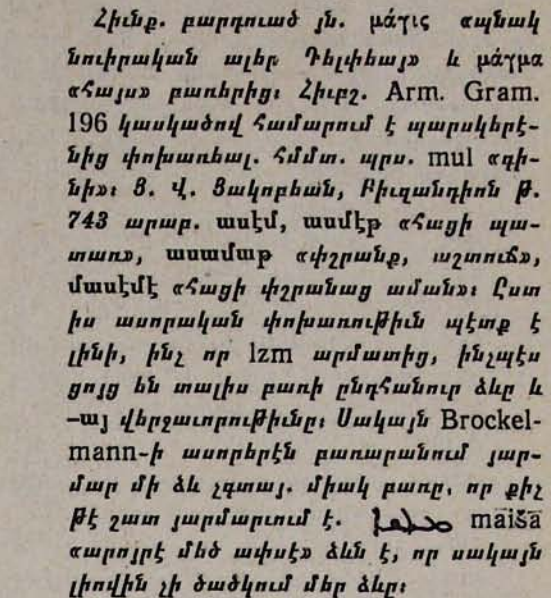 Հիւնք. բարդուած յն. μάγις «պնակ
նուիրական ալեր Դելփեայ» և μάγμα
«հայս» բառերից։ Հիւբշ. Arm. Gram.
196 կասկածով համարում է պարսկերէ-
նից փոխառեալ. հմմտ. պրս. mul «գի-
նի»։ Յ. Վ. Յակոբեան, Բիւզանդիոն թ.
743 արաբ. ասէմ, ասմէթ «հացի պա-
տառ», ասամաթ «փշրանք, աշտուճ»,
մասէմէ «հացի փշրանաց աման»։ Ըստ
իս ասորական փոխառութիւն պէտք է
լինի, ինչ որ lzm արմատից, ինչպէս
ցոյց են տալիս բառի ընդհանուր ձևը և
–այ վերջաւորութիւնը։ Սակայն Brockel-
mann-ի ասորերէն բառարանում յար-
մար մի ձև չգտայ. միակ բառը, որ քիչ
թէ շատ յարմարւում է. maišā
«արոյրէ մեծ ափսէ» ձևն է, որ սակայն
լիովին չի ծածկում մեր ձևը։